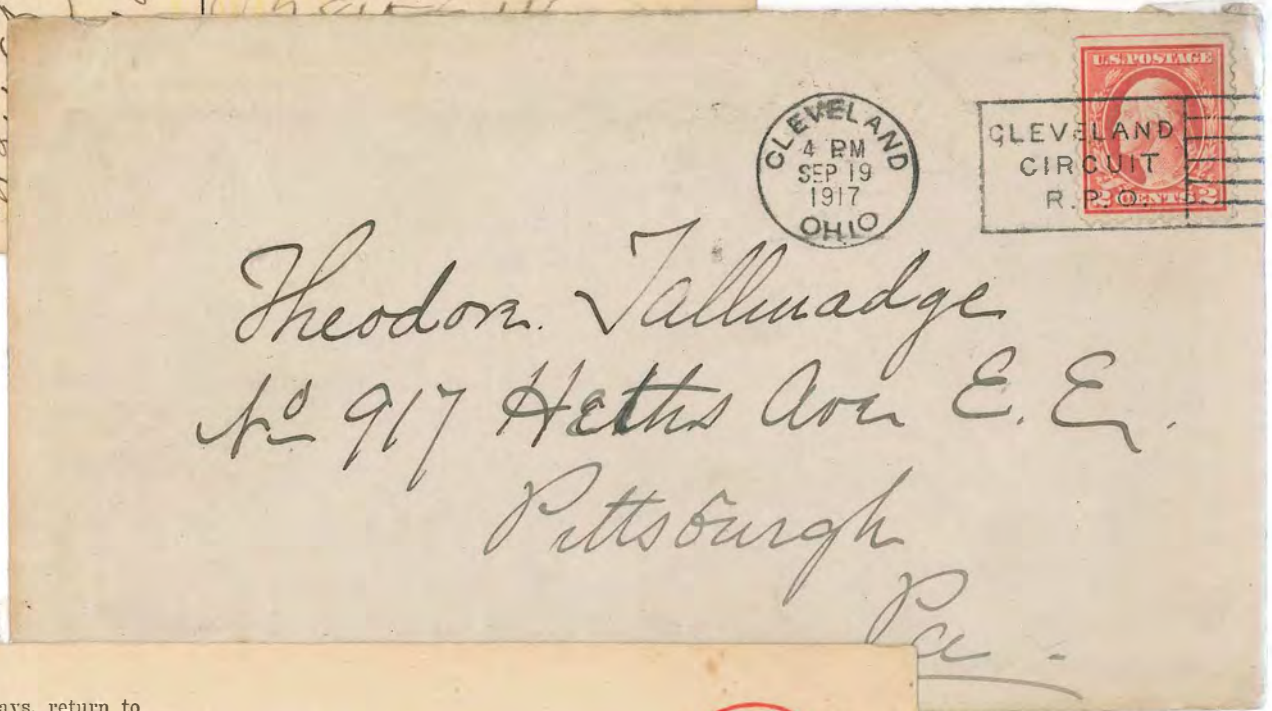 U.S. POSTAGE
CLEVELAND
4 PM
SEP 19
1917
OHIO
CLEVELAND
CIRCUIT
R.P.O.
2 CENTS 2
Theodore Tallmadge
No 917 Heths Ave E. E.
Pittsburgh
Pa
return to